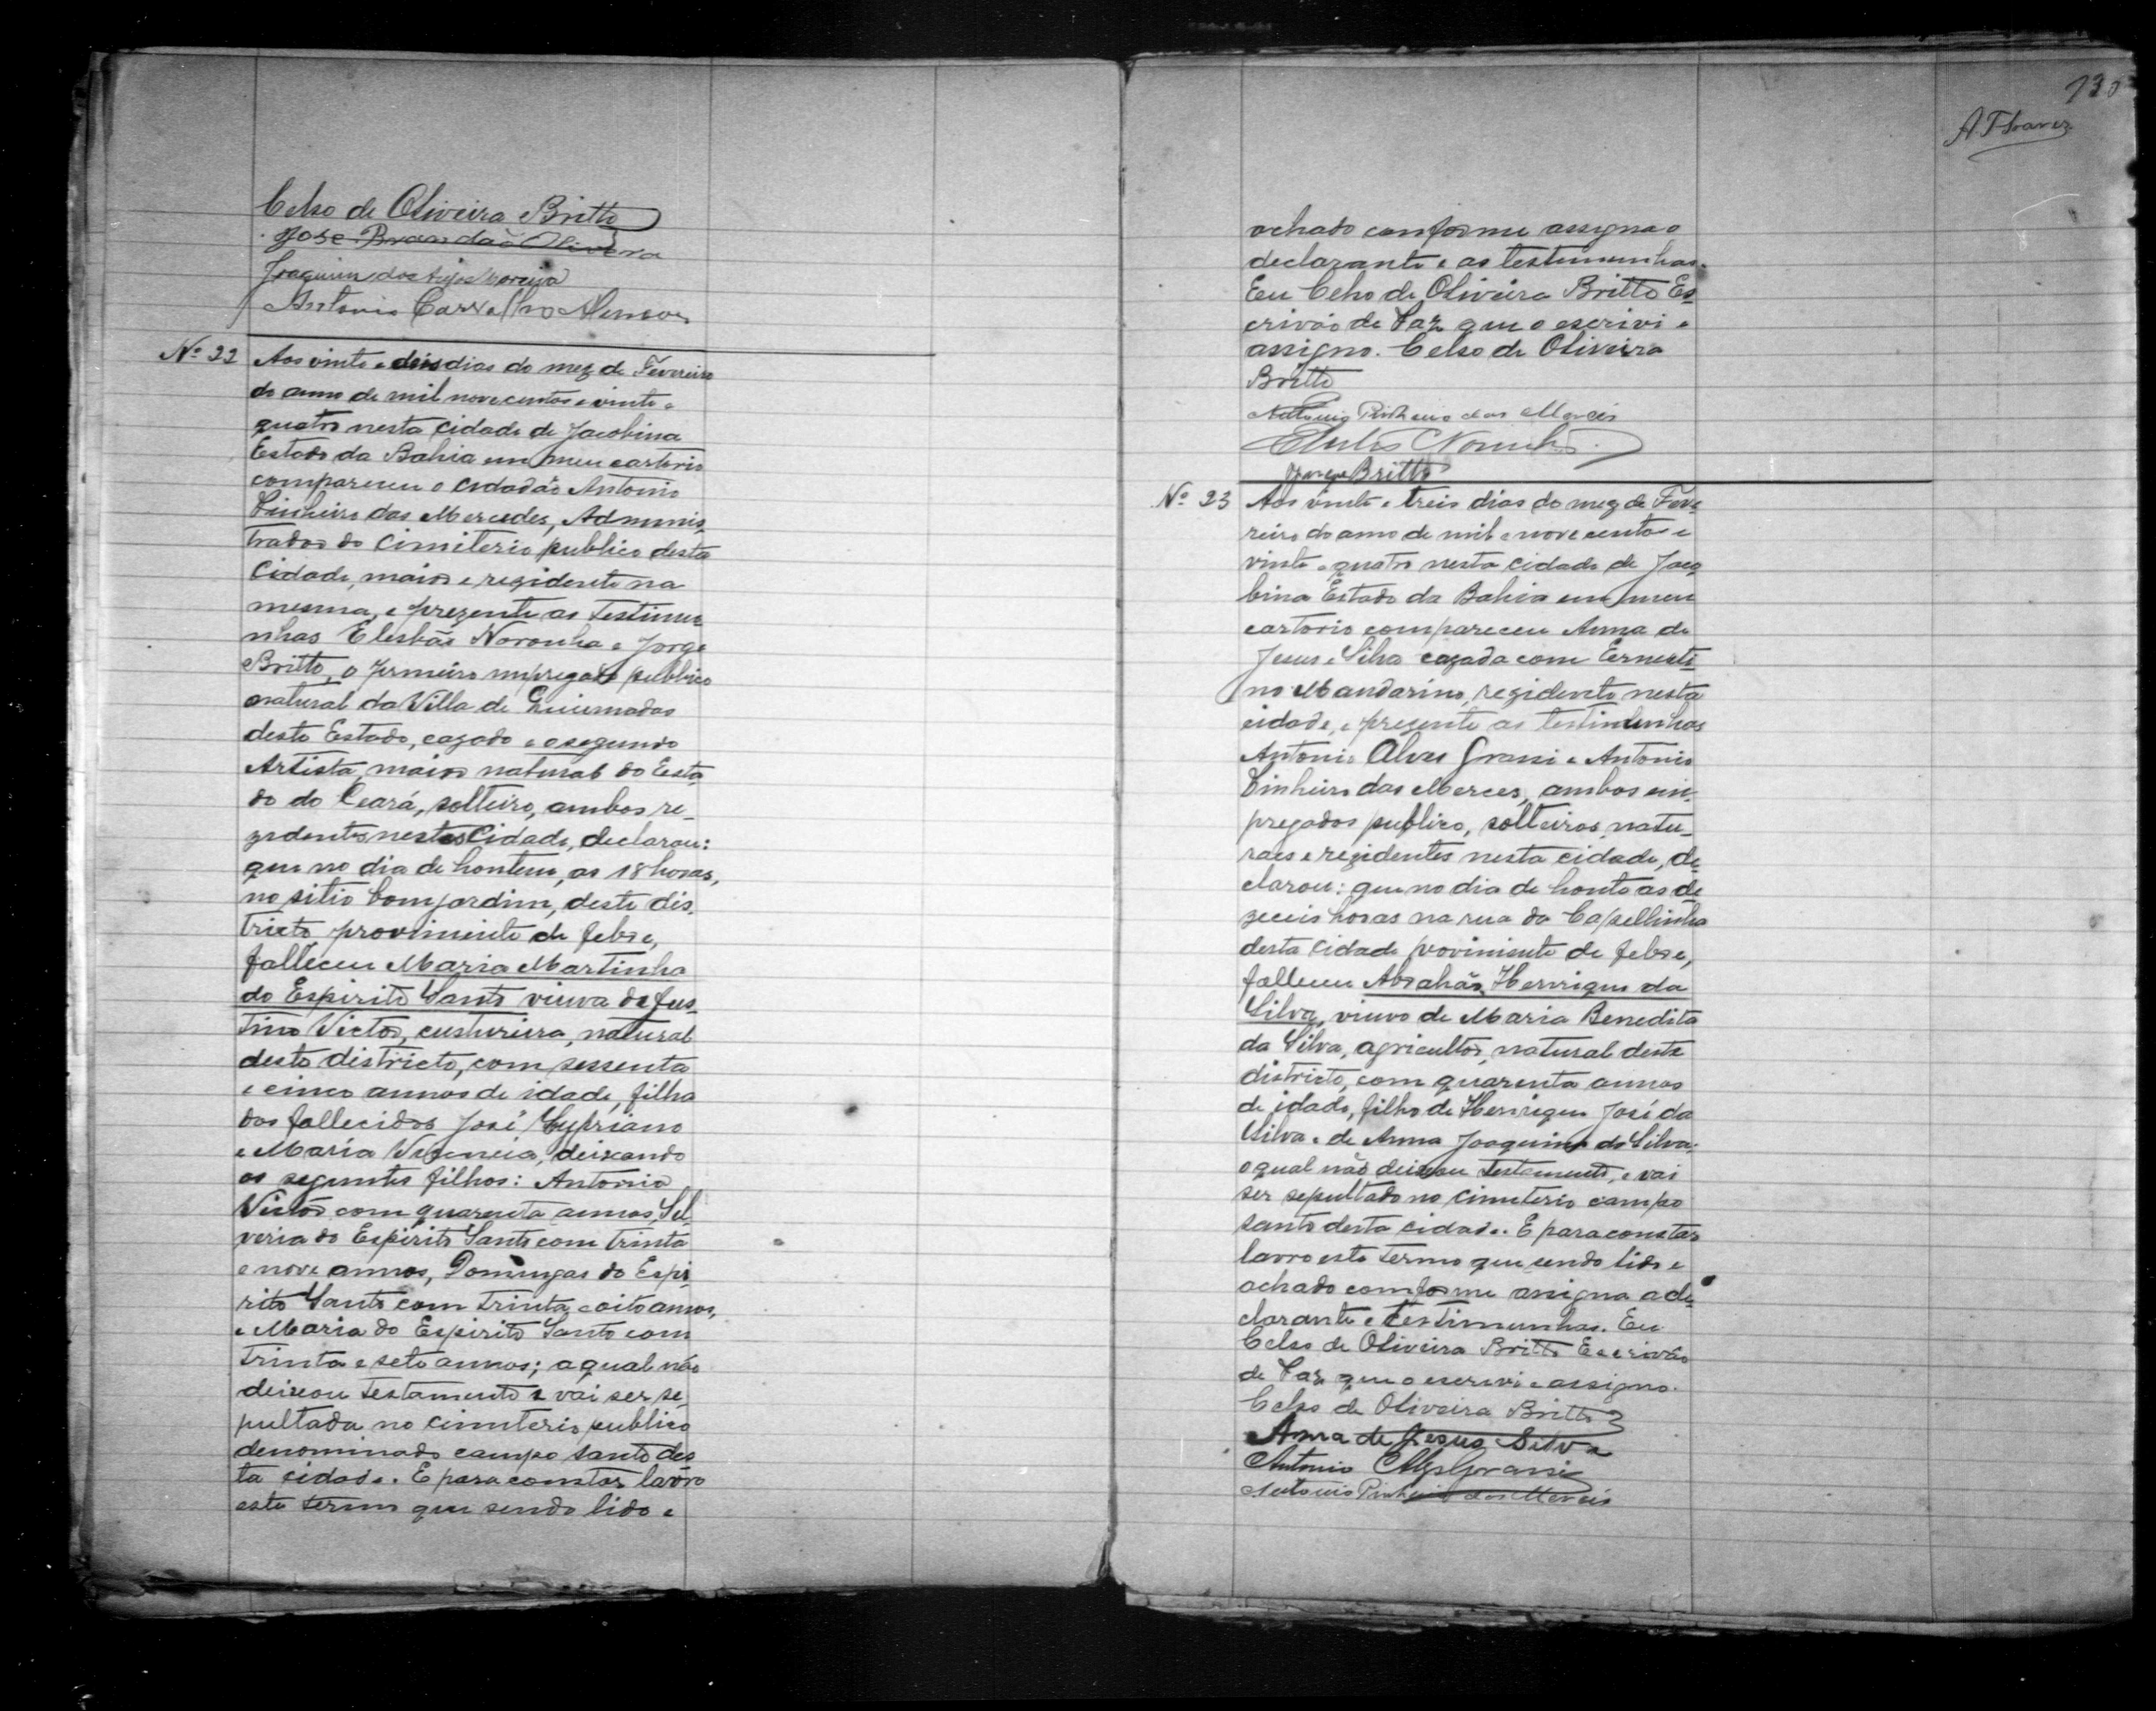 Celso de Oliveira Britto
José Brandão Oliveira
Joaquim dos Anjos Moreira
Antonio Carvalho
Nº 22 Aos vinte e dois dias do mez de Fevereiro
do anno de mil novecentos e vinte e
quatro nesta cidade de Jacobina
Estado da Bahia em meu cartorio
compareceu o cidadão Antonio
Pinheiro das Mercedes, Adminis
trador do cimiterio publico desta
Cidade, maior e rezidente na
mesma, e prezente as testimu
nhas Elesbão Noronha e Jorge
Britto, o primeiro impregado publico
natural da Villa de Queimadas
deste Estado, cazado e o segundo
Artista, maior natural do Esta
do do Ceará, solteiro, ambos re-
zidentes nesta Cidade, declarou:
que no dia de hontem, as 18 horas,
no sitio Bomjardim, deste dis
tricto proviniente de febre,
falleceu Maria Martinha
do Espirito Santo viuva de Jus
tino Victor, custureira, natural
deste districto, com sessenta
e cinco annos de idade, filha
dos fallecidos José Cypriano
e Maria Vicencia, deixando
os seguintes filhos: Antonio
Victor com quarenta annos, Sil
veria do Espirito Santo com trinta
e nove annos, Domingas do Espi
rito Santo com trinta e oito annos,
e Maria do Espirito Santo com
trinta e sete annos; a qual não
deixou testamento e vai ser se
pultada no cimiterio publico
denominado campo santo des
ta cidade. E para constar lavro
este termo que sendo lido e
130
A. T. Soares
achado conforme assigna o
declarante e as testemunhas.
Eu Celso de Oliveira Britto Es
crivão de Paz que o escrivi e
assigno. Celso de Oliveira
Britto
Antonio Pinheiro das Mercês
Noronha
Jorge Britto
Nº 23 Aos vinte e treis dias do mez de Feve
reiro do anno de mil e novecentos e
vinte e quatro nesta cidade de Jaco
bina Estado da Bahia em meu
cartorio compareceu Anna de
Jesus e Silva cazada com Ernesti
no Mandarino, rezidente nesta
cidade, e prezente as testimunhas
Antonio Alves Grassi e Antonio
Pinheiro das Merces, ambos em
pregados publico, solteiros, natu-
raes e rezidentes nesta cidade, de
clarou: que no dia de honte as de
zeceis horas na rua da Capellinha
desta cidade proviniente de febre,
falleceu Abrahão Henrique da
Silva, viuvo de Maria Benedita
da Silva, agricultor, natural deste
districto, com quarenta annos
de idade, filho de Henrique José da
Silva e de Anna Joaquina da Silva;
o qual não deixou testamento, e vai
ser sepultado no cimiterio campo
santo desta cidade. E para constar
lavro este termo que sendo lido e
achado conforme assigna a de
clarante e testimunhas. Eu
Celso de Oliveira Britto Escrivão
de Paz que o escrivi e assigno.
Celso de Oliveira Britto
Anna de Jesus Silva
Antonio Alves Grassi
Antonio Pinheiro das Mercês